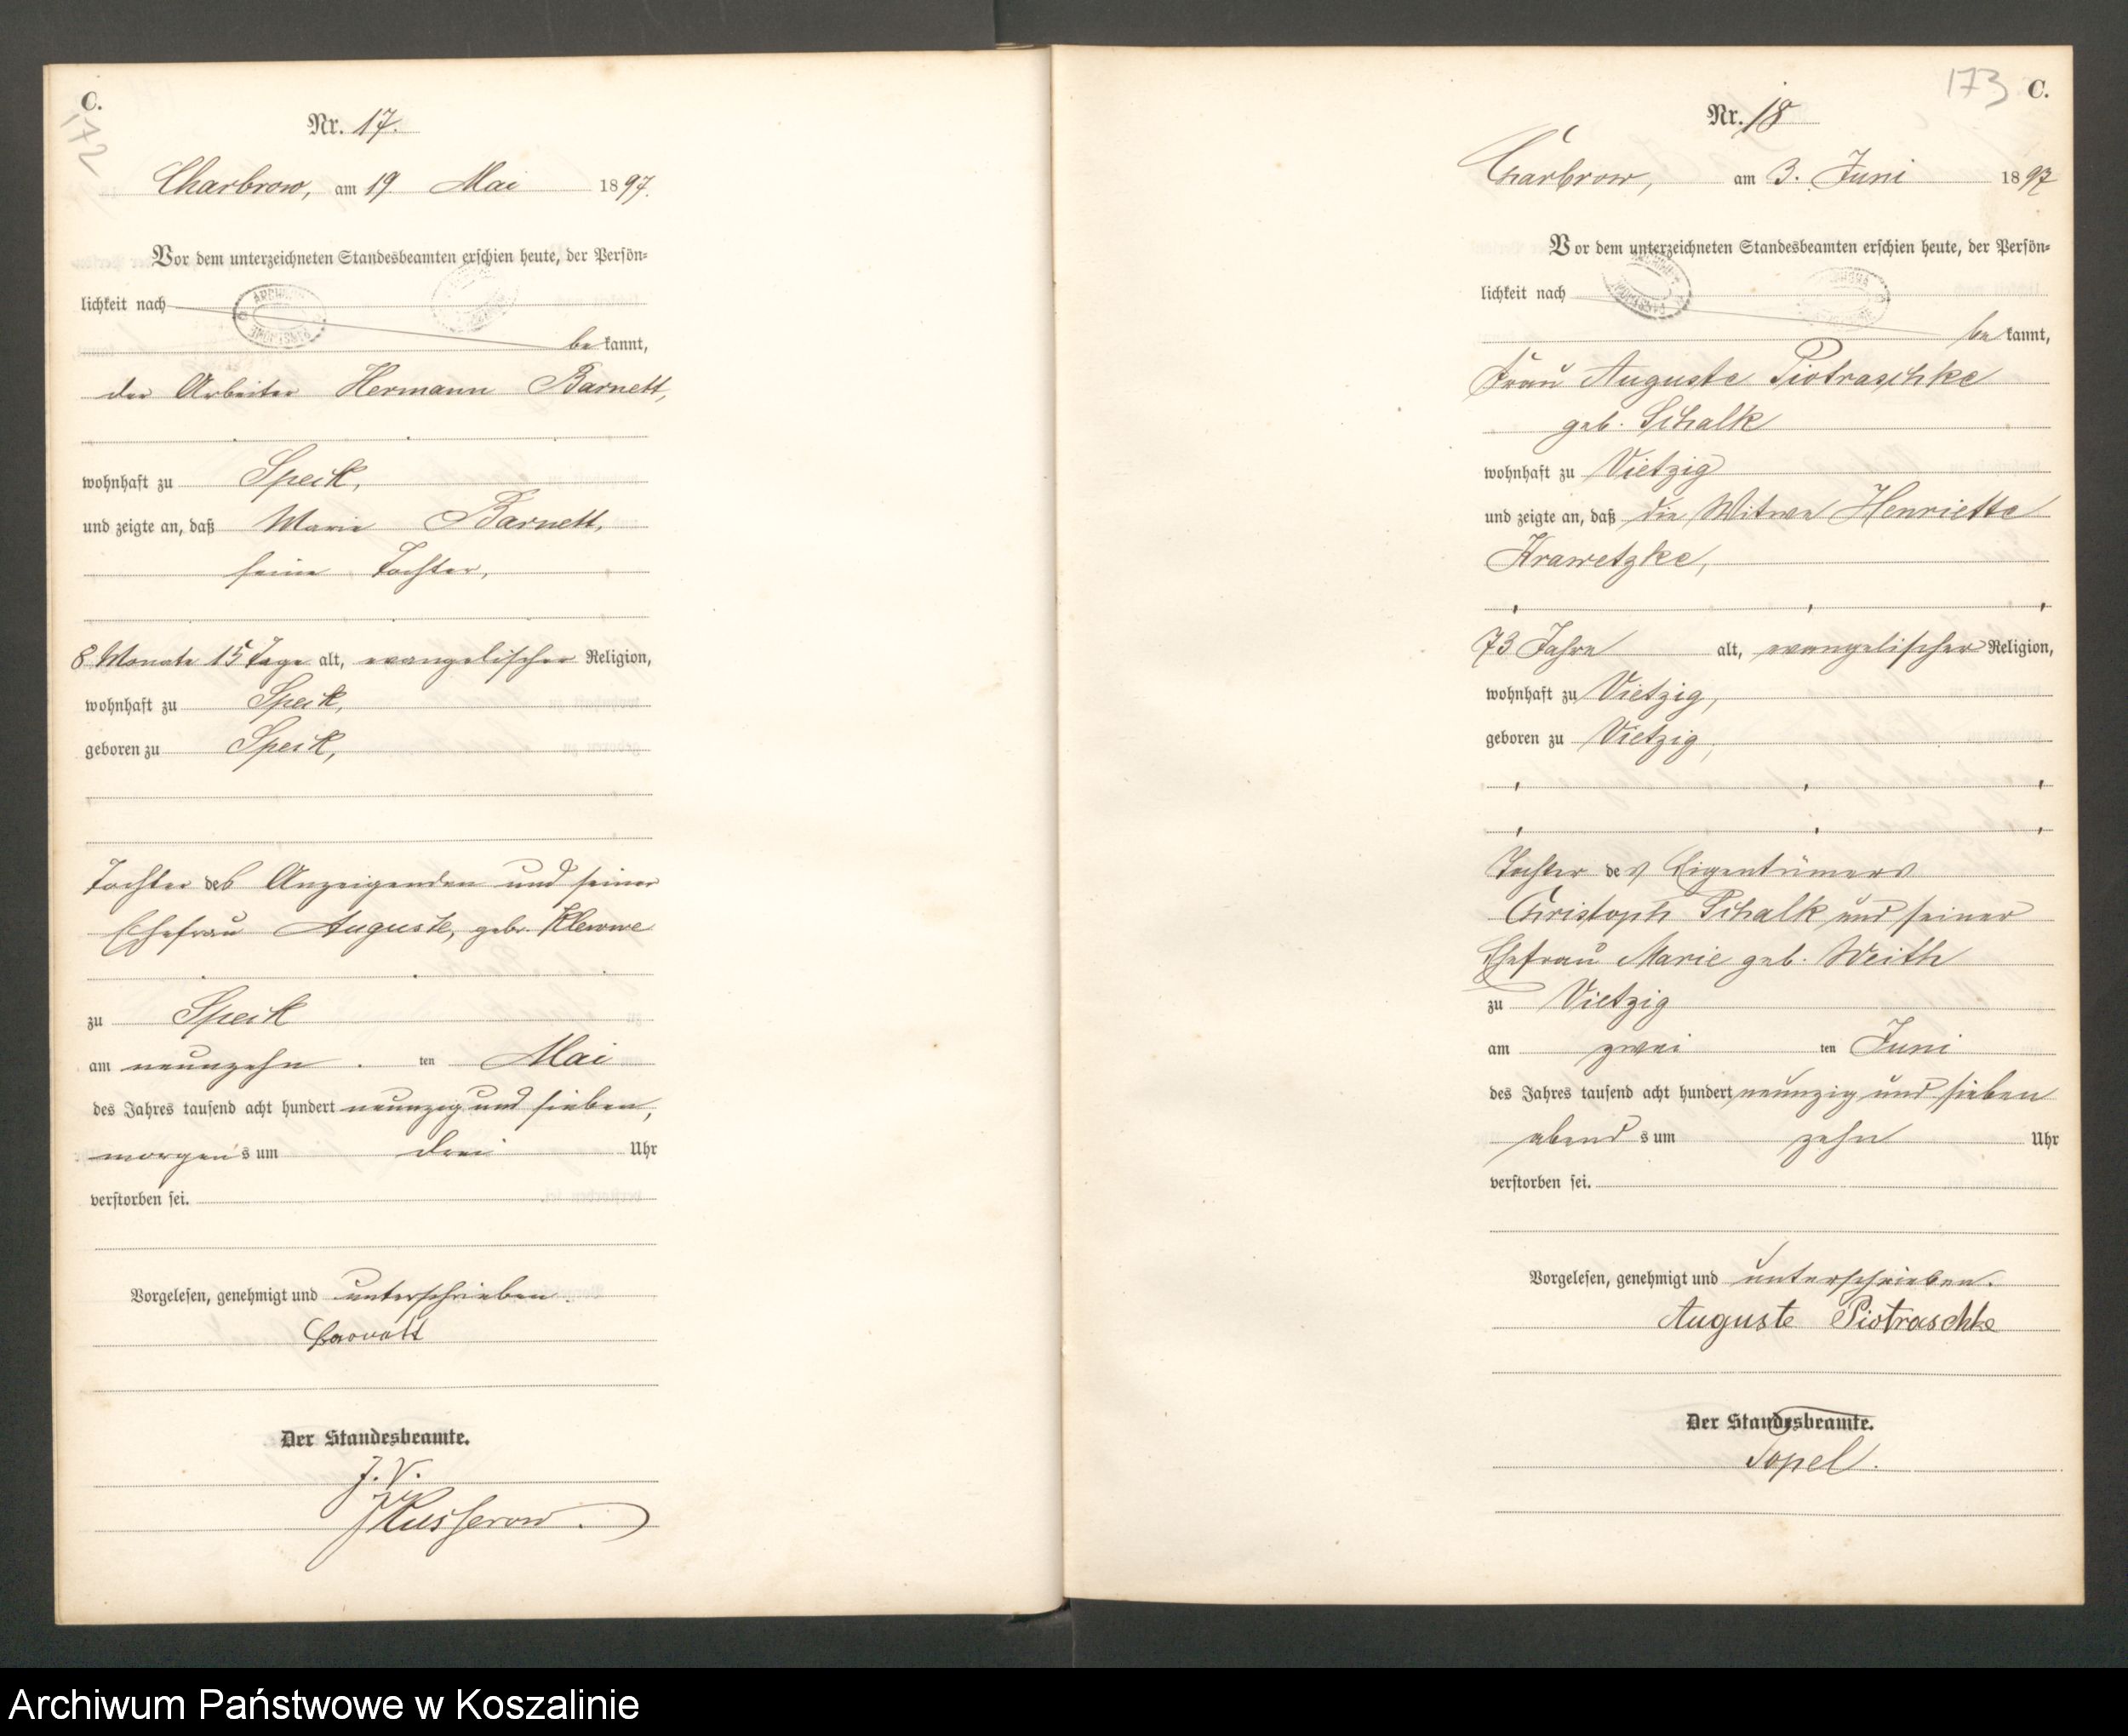 C.
172
Nr. 17.
Charbrow, am 19 Mai 1897.
Vor dem unterzeichneten Standesbeamten erschien heute, der Persön-
lichkeit nach
be kannt,
der Arbeiter Hermann Barnett,
wohnhaft zu Speck,
und zeigte an, daß Marie Barnett,
seine Tochter,
8 Monate 15 Tage alt, evangelischer Religion,
wohnhaft zu Speck,
geboren zu Speck,
Tochter des Anzeigenden und seiner
Ehefrau Auguste, geb. Klewwe
zu Speck
am neunzehn ten Mai
des Jahres tausend acht hundert neunzig und sieben,
morgens um drei Uhr
verstorben sei.
Vorgelesen, genehmigt und unterschrieben.
Der Standesbeamte.
J. V.
Kusserow.
173 C.
Nr. 18
Charbrow, am 3. Juni 1897
Vor dem unterzeichneten Standesbeamten erschien heute, der Persön-
lichkeit nach
be kannt,
Frau Auguste Piotraschke
geb. Schalk
wohnhaft zu Vietzig
und zeigte an, daß die Witwe Henriette
Krawetzke,
73 Jahre alt, evangelischer Religion,
wohnhaft zu Vietzig,
geboren zu Vietzig,
Tochter des Eigentümers
Christoph Schalk und seiner
Ehefrau Marie geb. Weith
zu Vietzig
am zwei ten Juni
des Jahres tausend acht hundert neunzig und sieben
abends um zehn Uhr
verstorben sei.
Vorgelesen, genehmigt und unterschrieben.
Auguste Piotraschke
Der Standesbeamte.
Topel.
Archiwum Państwowe w Koszalinie